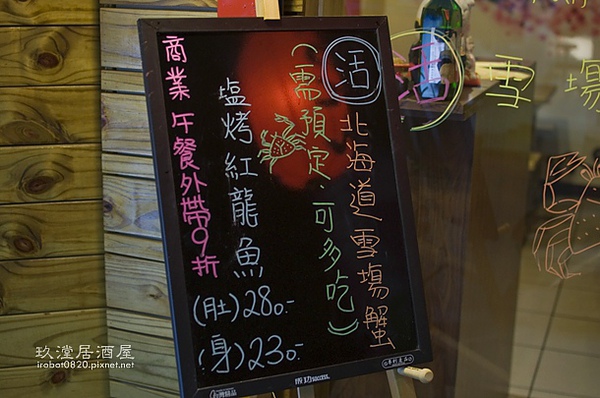 活
北海道雪場蟹
(需預定.可多吃)
塩烤紅龍魚
(肚)280.-
(身)230.-
商業午餐外帶9折
成功 success
活
雪場
玖瀅居酒屋
irobot0820.pixnet.net